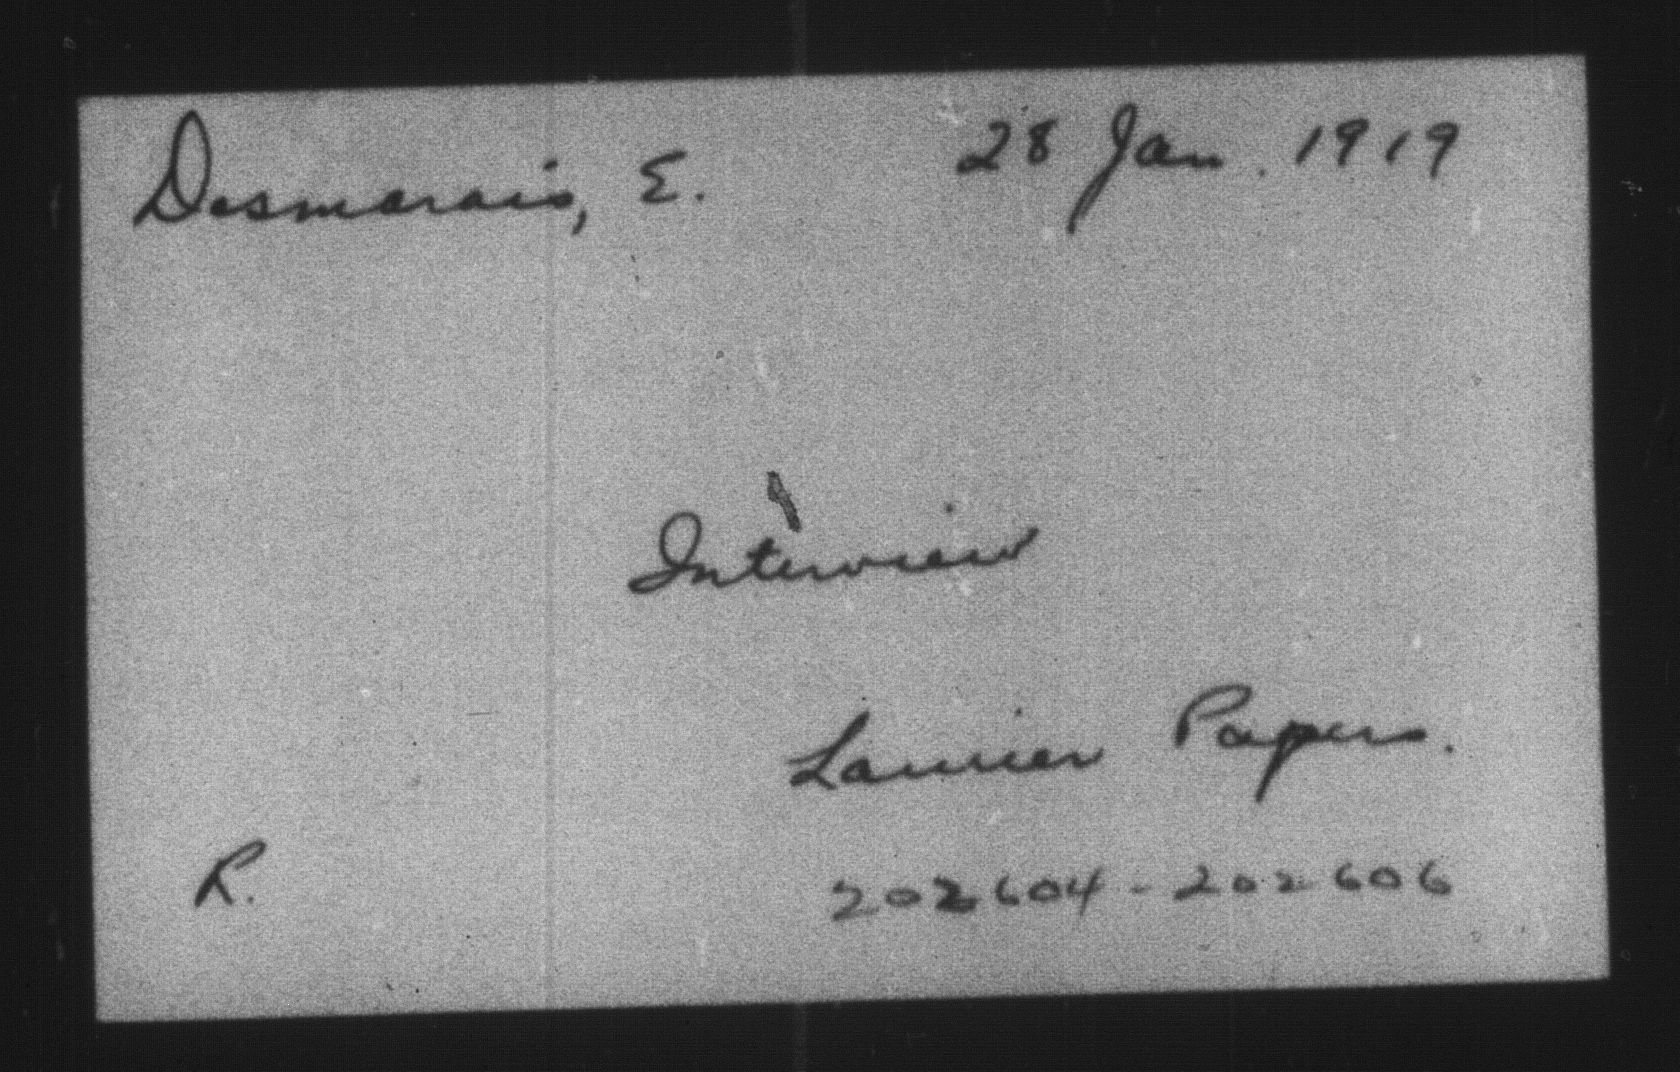 Desmarais, E. 28 Jan. 1919
Interview
Laurier Papers.
R. 202604-202606